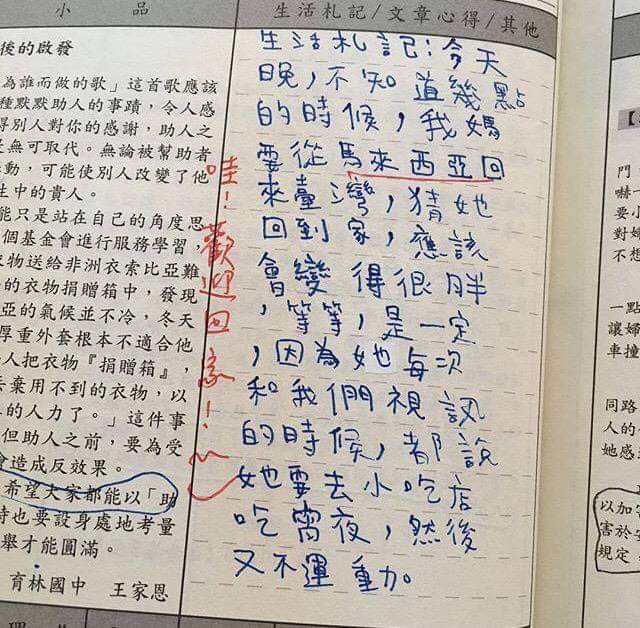 小品
後的啟發
為誰而做的歌」這首歌應該
種默默助人的事蹟，令人感
得別人對你的感謝，助人之
是無可取代。無論被幫助者
動，可能使別人改變了他
生中的貴人。
能只是站在自己的角度思
個基金會進行服務學習，
衣物送給非洲衣索比亞難
的衣物捐贈箱中，發現
亞的氣候並不冷，冬天
厚重外套根本不適合他
人把衣物『捐贈箱』，
丟棄用不到的衣物，以
的人力了。」這件事
但助人之前，要為受
會造成反效果。
希望大家都能以「助
時也要設身處地考量
舉才能圓滿。
育林國中 王家恩
生活札記/文章心得/其他
生活札記：今天
晚，不知道幾點
的時候，我媽
要從馬來西亞回
來臺灣，猜她
回到家，應該
會變得很胖
，等等，是一定
，因為她每次
和我們視訊
的時候，都說
她要去小吃店
吃宵夜，然後
又不運動。
哇！歡迎回家！
門
嚇一
要「
對婦
不想
一點
讓婦
車撞
同路
人的
她感
以加害
害於
規定